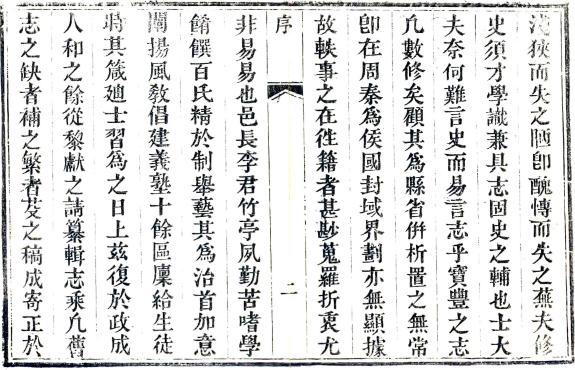 淺狹而失之陋卽醜慱而失之蕪夫修
史須才學識兼具志固史之輔也士大
夫奈何難言史而易言志乎寶豐之志
凡數修矣顧其爲縣省倂析置之無常
卽在周秦爲侯國封域界劃亦無顯據
故軼事之在徃籍者甚尠蒐羅折衷尤
序
二
非易易也邑長李君竹亭夙勤苦嗜學
餚饌百氏精於制舉藝其爲治首加意
闡揚風敎倡建義塾十餘區廩給生徒
時其箴廸士習爲之日上兹復於政成
人和之餘從黎獻之請纂輯志乘凡舊
志之缺者補之繁者芟之稿成寄正於